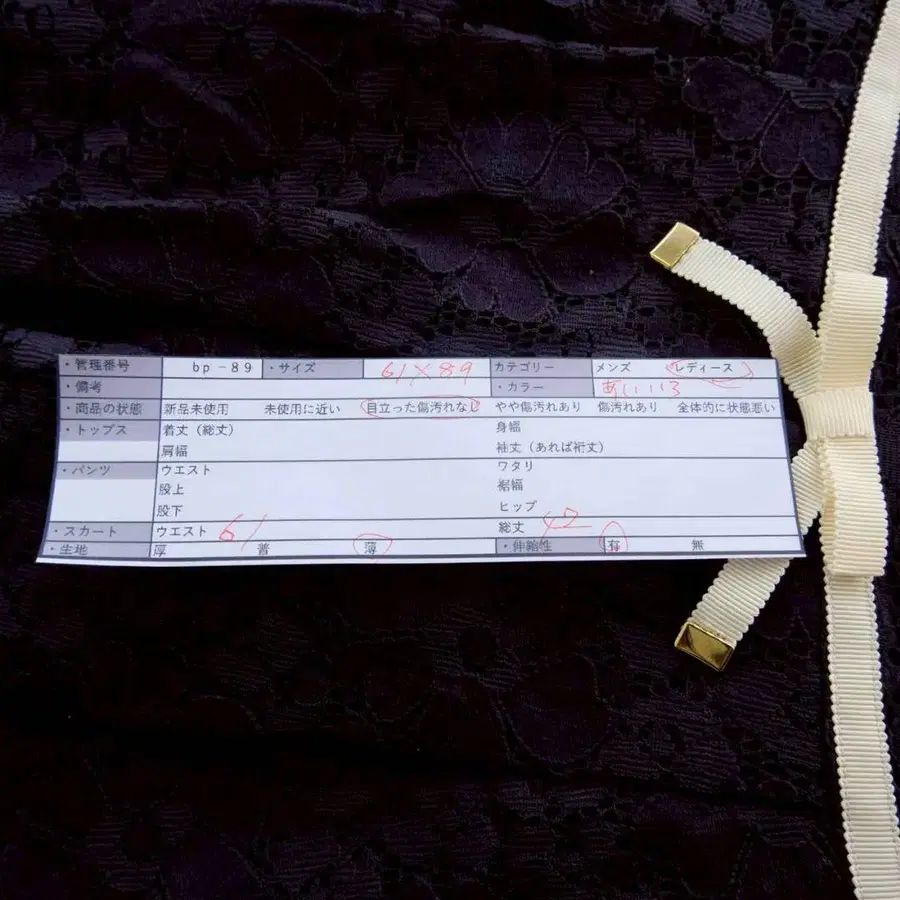 ・管理番号 bp-89 ・サイズ 61×89 カテゴリー メンズ レディース
・備考 ・カラー
・商品の状態 新品未使用 未使用に近い 目立った傷汚れなし やや傷汚れあり 傷汚れあり 全体的に状態悪い
・トップス 着丈（総丈） 身幅
肩幅 袖丈（あれば裄丈）
・パンツ ウエスト ワタリ
股上 裾幅
股下 ヒップ
・スカート ウエスト 61 総丈 42
・生地 厚 普 薄 ・伸縮性 有 無